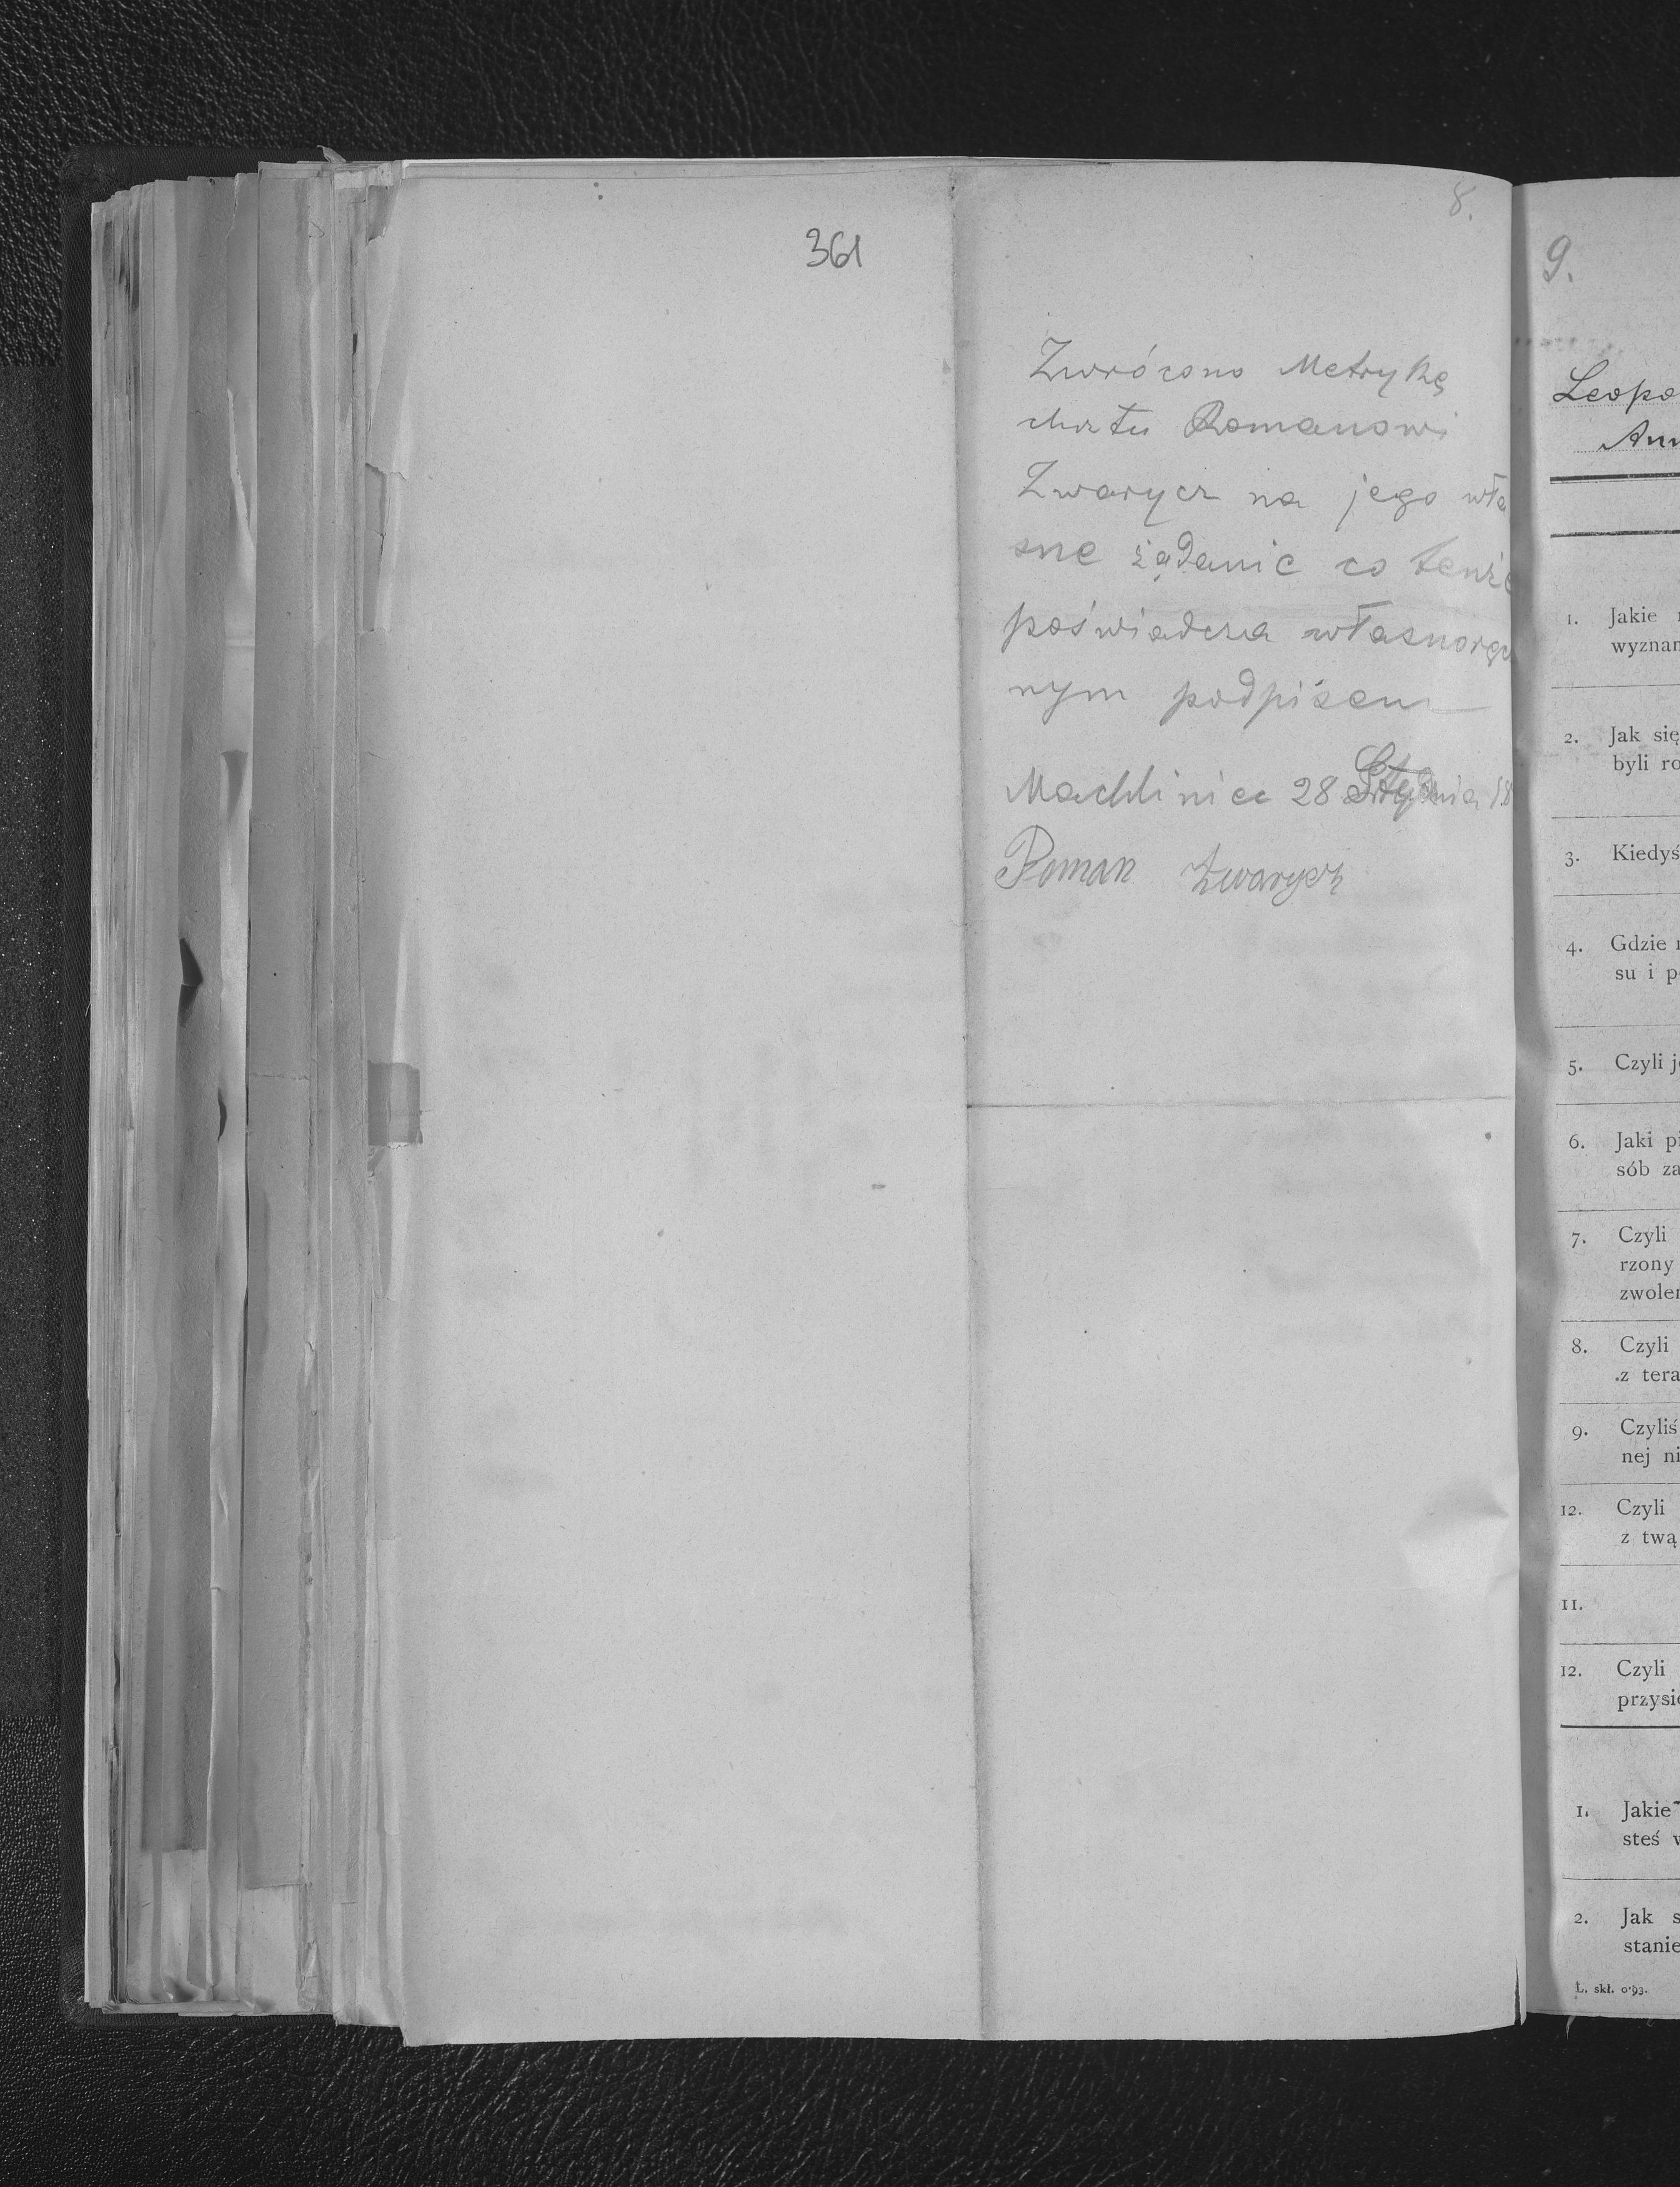 361
8.
Zwrócono Metrykę
chrztu Romanowi
Zwarycz na jego wła
sne żądanie co tenże
poświadcza własnoręcz
nym podpisem
Machliniec 28 18
Roman Zwarycz
9.
Leopo
Ann
1. Jakie
wyznan
2. Jak się
byli ro
3. Kiedyś
4. Gdzie
su i p
5. Czyli j
6. Jaki p
sób za
7. Czyli
rzony
zwolen
8. Czyli
z tera
9. Czyliś
nej ni
12. Czyli
z twą
11.
12. Czyli
przysi
1. Jakie
steś w
2. Jak s
stanie
L. skł. 0·93.